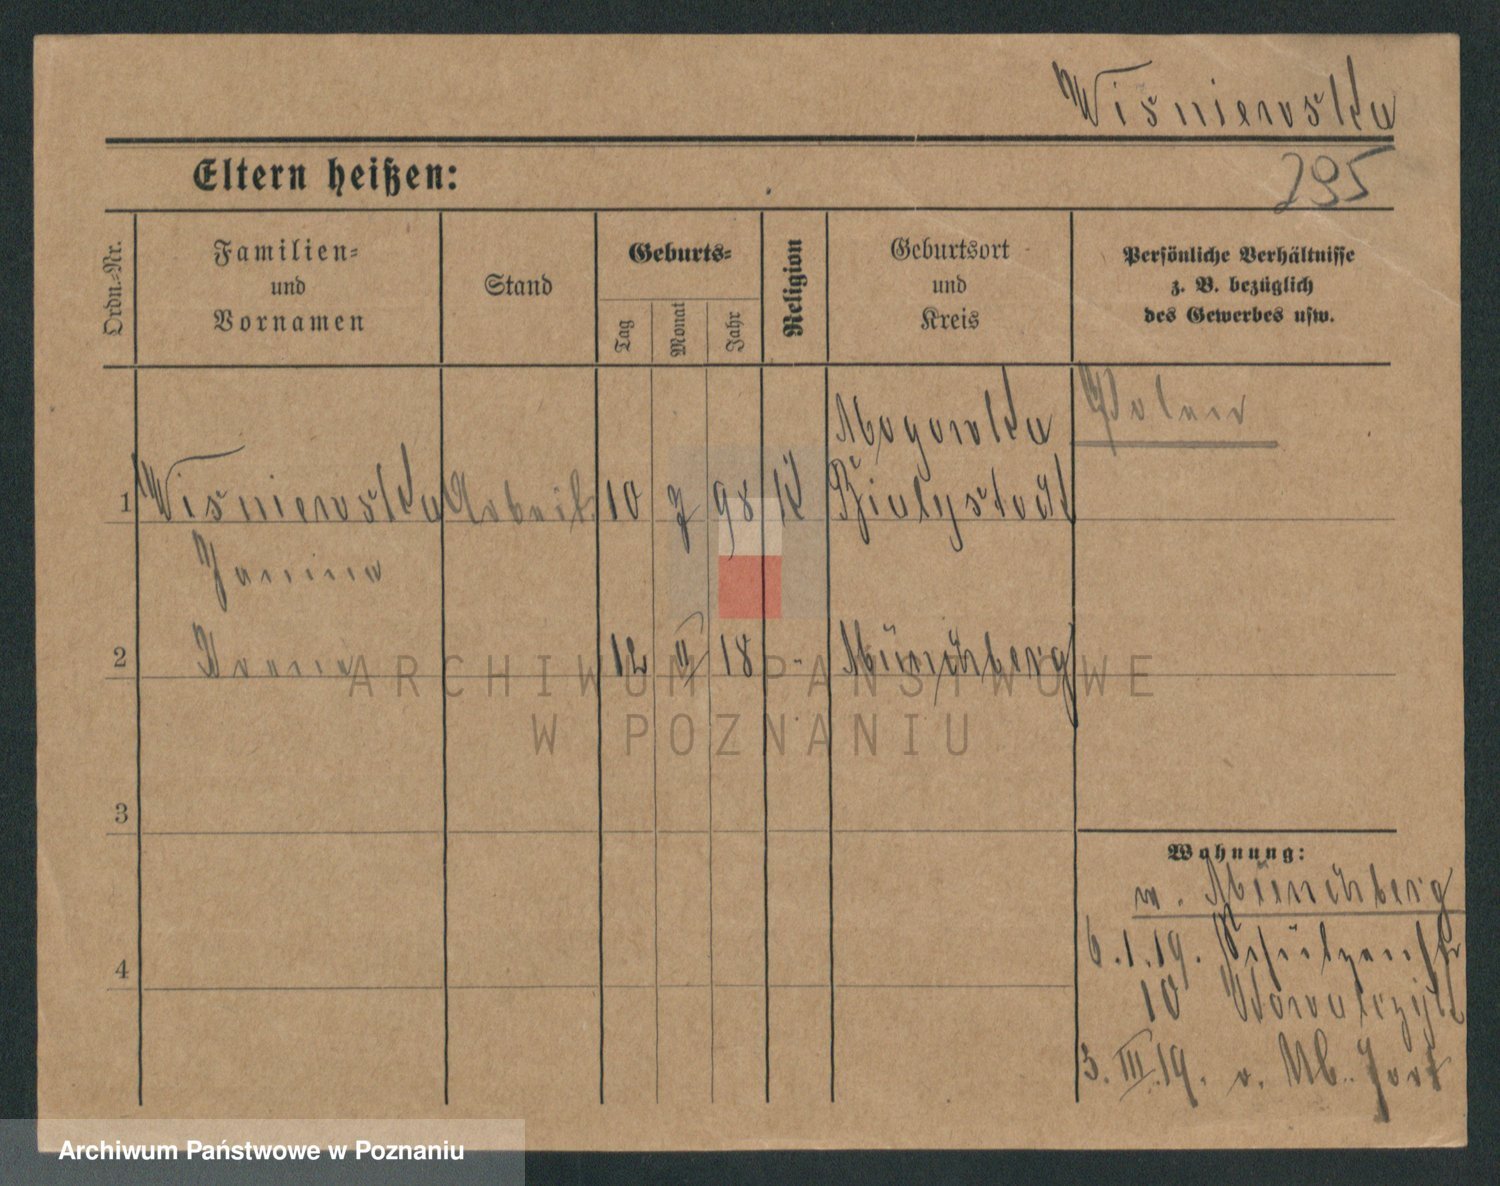 Wiśniewska
295
Eltern heißen:
Ordn.=Nr.
Familien=
und
Vornamen
Stand
Geburts=
Tag
Monat
Jahr
Religion
Geburtsort
und
Kreis
Persönliche Verhältnisse
z. B. bezüglich
des Gewerbes usw.
Polen
1 Wiśniewska Arbeit. 10 98 K Bialystock
Janina
2 12 II 18 " Müncheberg
3
4
Wohnung:
Müncheberg
6.1.19. Schützenstr
10
3.III.19. v.
ARCHIWUM PAŃSTWOWE
W POZNANIU
Archiwum Państwowe w Poznaniu